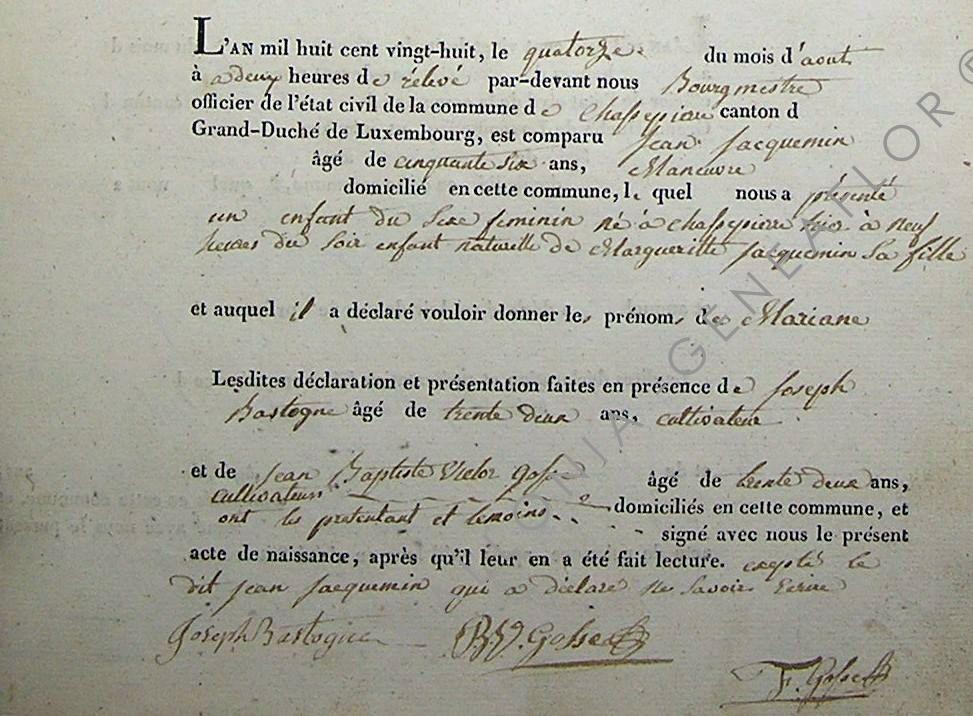 L'AN mil huit cent vingt-huit, le quatorze du mois d'aout
à a deux heures de rélevé par-devant nous Bourgmestre
officier de l'état civil de la commune de Chassepierre canton d
Grand-Duché de Luxembourg, est comparu Jean Jacquemin
âgé de cinquante six ans, Maneuvre
domicilié en cette commune, le quel nous a présenté
un enfant du sexe feminin né à chassepierre hier à neuf
heures du soir enfant naturelle de Margueritte Jacquemin sa fille
et auquel il a déclaré vouloir donner les prénoms de Mariane
Lesdites déclaration et présentation faites en présence de Joseph
Bastogne âgé de trente deux ans, cultivateur
et de Jean Baptiste Victor Gosse âgé de trente deux ans,
cultivateurs
ont les et temoins domiciliés en cette commune, et
signé avec nous le présent
acte de naissance, après qu'il leur en a été fait lecture. exepté le
dit jean jacquemin qui a déclaré ne savoir Ecrire
Joseph Bastogne B.V. Gosse
F. Gosse
© GENEATLOR